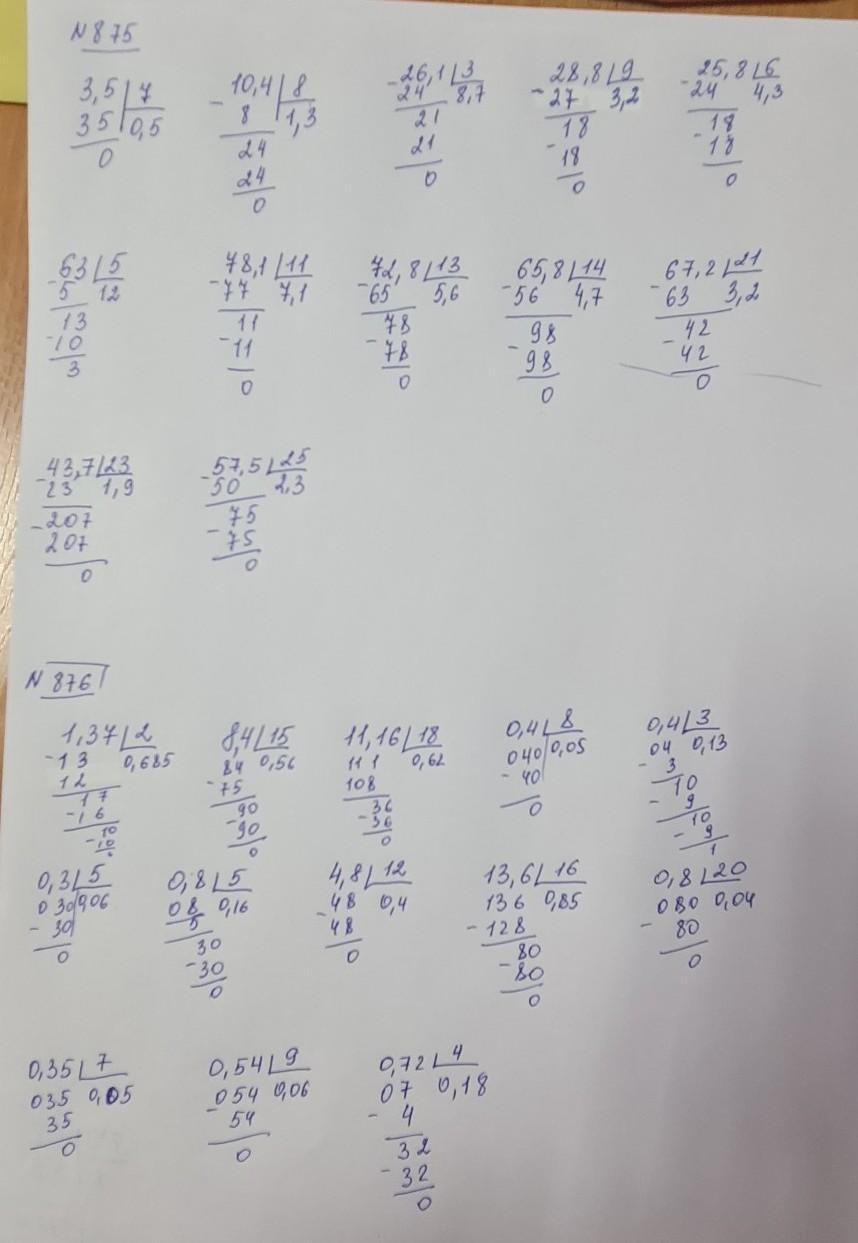 N 875
3,5 7 10,4 8 26,1 3 28,8 9 25,8 6
35 0,5 - 8 1,3 - 24 8,7 - 27 3,2 - 24 4,3
0 24 21 18 18
24 21 - 18 - 18
0 0 0 0
63 5 78,1 11 72,8 13 65,8 14 67,2 21
- 5 12 - 77 7,1 - 65 5,6 - 56 4,7 - 63 3,2
13 11 78 98 42
- 10 - 11 - 78 - 98 - 42
3 0 0 0 0
43,7 23 57,5 25
- 23 1,9 - 50 2,3
- 207 75
207 - 75
0 0
N 876
1,37 2 8,4 15 11,16 18 0,4 8 0,4 3
- 13 0,685 84 0,56 111 0,62 040 0,05 04 0,13
12 - 75 108 - 40 - 3
17 90 36 0 10
- 16 - 90 - 36 - 9
10 0 0 10
- 10 - 9
0 1
0,3 5 0,8 5 4,8 12 13,6 16 0,8 20
030 0,06 08 0,16 48 0,4 136 0,85 080 0,04
- 30 5 - 48 - 128 - 80
0 30 0 80 0
- 30 - 80
0 0
0,35 7 0,54 9 0,72 4
035 0,05 054 0,06 07 0,18
35 - 54 - 4
0 0 32
- 32
0